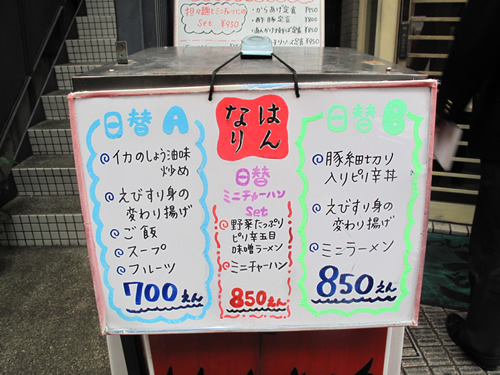 担々麺とミニチャーハンの
Set ¥950
・からあげ定食 ¥850
・酢豚定食 ¥800
はん
なり
日替A
@イカのしょう油味
炒め
@えびすり身の
変わり揚げ
@ご飯
@スープ
@フルーツ
700えん
日替
ミニチャーハン
Set
@野菜たっぷり
ピリ辛五目
味噌ラーメン
@ミニチャーハン
850えん
日替B
@豚細切り
入りピリ辛丼
@えびすり身の
変わり揚げ
@ミニラーメン
850えん